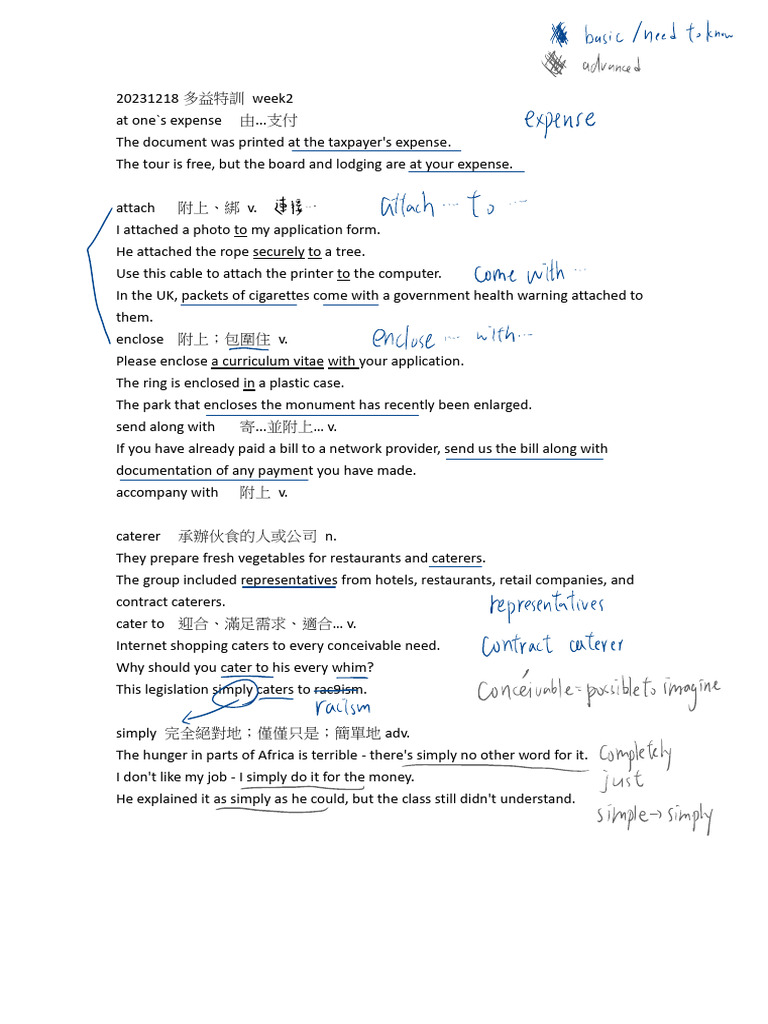 basic / need to know
advanced
20231218 多益特訓 week2
at one`s expense 由...支付
expense
The document was printed at the taxpayer's expense.
The tour is free, but the board and lodging are at your expense.
attach 附上、綁 v. 連接… attach … to …
I attached a photo to my application form.
He attached the rope securely to a tree.
Use this cable to attach the printer to the computer. come with …
In the UK, packets of cigarettes come with a government health warning attached to
them.
enclose 附上；包圍住 v. enclose … with …
Please enclose a curriculum vitae with your application.
The ring is enclosed in a plastic case.
The park that encloses the monument has recently been enlarged.
send along with 寄...並附上... v.
If you have already paid a bill to a network provider, send us the bill along with
documentation of any payment you have made.
accompany with 附上 v.
caterer 承辦伙食的人或公司 n.
They prepare fresh vegetables for restaurants and caterers.
The group included representatives from hotels, restaurants, retail companies, and
contract caterers.
representatives
cater to 迎合、滿足需求、適合... v.
Internet shopping caters to every conceivable need. contract caterer
Why should you cater to his every whim?
conceivable = possible to imagine
This legislation simply caters to rac9ism.
racism
simply 完全絕對地；僅僅只是；簡單地 adv.
The hunger in parts of Africa is terrible - there's simply no other word for it. completely
I don't like my job - I simply do it for the money. just
He explained it as simply as he could, but the class still didn't understand. simple → simply